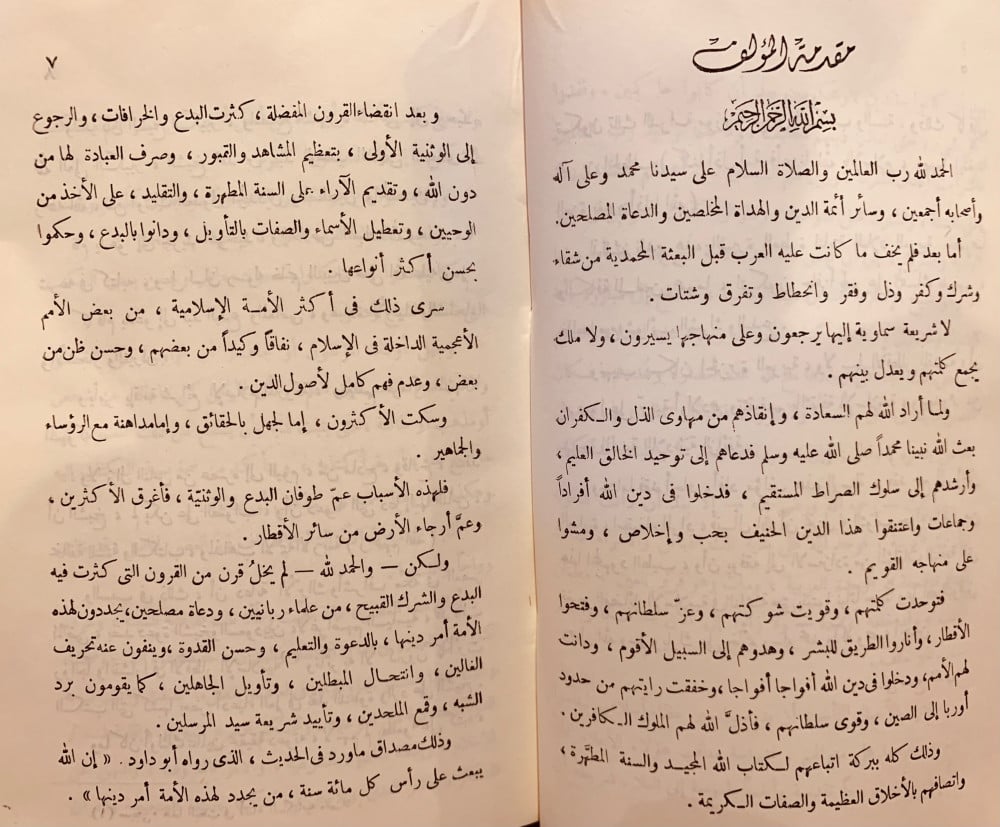 مقدمة المؤلف
بسم الله الرحمن الرحيم
الحمد لله رب العالمين والصلاة السلام على سيدنا محمد وعلى آله
وأصحابه أجمعين ، وسائر أئمة الدين والهداة المخلصين والدعاة المصلحين.
أما بعد فلم يخف ما كانت عليه العرب قبل البعثة المحمدية من شقاء
وشرك وكفر وذل وفقر وانحطاط وتفرق وشتات .
لا شريعة سماوية إليها يرجعون وعلى منهاجها يسيرون ، ولا ملك
يجمع كلمتهم ويعدل بينهم .
ولما أراد الله لهم السعادة ، وإنقاذهم من مهاوى الذل والكفران
بعث الله نبينا محمداً صلى الله عليه وسلم فدعاهم إلى توحيد الخالق العليم ،
وأرشدهم إلى سلوك الصراط المستقيم ، فدخلوا فى دين الله أفراداً
وجماعات واعتنقوا هذا الدين الحنيف بحب وإخلاص ، ومشوا
على منهاجه القويم .
فتوحدت كلمتهم ، وقويت شوكتهم ، وعزّ سلطانهم ، وفتحوا
الأقطار ، وأناروا الطريق للبشر ، وهدوهم إلى السبيل الأقوم ، ودانت
لهم الأمم، ودخلوا فى دين الله أفواجا أفواجا ، وخفقت رايتهم من حدود
أوربا إلى الصين ، وقوى سلطانهم ، فأذلَّ الله لهم الملوك الكافرين .
وذلك كله ببركة اتباعهم لكتاب الله المجيد والسنة المطهَّرة ،
واتصافهم بالأخلاق العظيمة والصفات الكريمة .
٧
وبعد انقضاء القرون المفضلة ، كثرت البدع والخرافات ، والرجوع
إلى الوثنية الأولى ، بتعظيم المشاهد والقبور ، وصرف العبادة لها من
دون الله ، وتقديم الآراء على السنة المطهرة ، والتقليد ، على الأخذ من
الوحيين ، وتعطيل الأسماء والصفات بالتأويل ، ودانوا بالبدع ، وحكموا
بحسن أكثر أنواعها .
سرى ذلك فى أكثر الأمة الإسلامية ، من بعض الأمم
الأعجمية الداخلة فى الإسلام ، نفاقاً وكيداً من بعضهم ، وحسن ظن من
بعض ، وعدم فهم كامل لأصول الدين .
وسكت الأكثرون ، إما لجهل بالحقائق ، وإما مداهنة مع الرؤساء
والجماهير .
فلهذه الأسباب عمّ طوفان البدع والوثنيّة ، فأغرق الأكثرين ،
وعمَّ أرجاء الأرض من سائر الأقطار .
ولكن — والحمد لله — لم يخلُ قرن من القرون التى كثرت فيه
البدع والشرك القبيح ، من علماء ربانيين ، ودعاة مصلحين، يجددون لهذه
الأمة أمر دينها ، بالدعوة والتعليم ، وحسن القدوة ، وينفون عنه تحريف
الغالين ، وانتحال المبطلين ، وتأويل الجاهلين ، كما يقومون برد
الشبه ، وقمع الملحدين ، وتأييد شريعة سيد المرسلين .
وذلك مصداق ماورد فى الحديث ، الذى رواه أبو داود . « إن الله
يبعث على رأس كل مائة سنة ، من يجدد لهذه الأمة أمر دينها » .